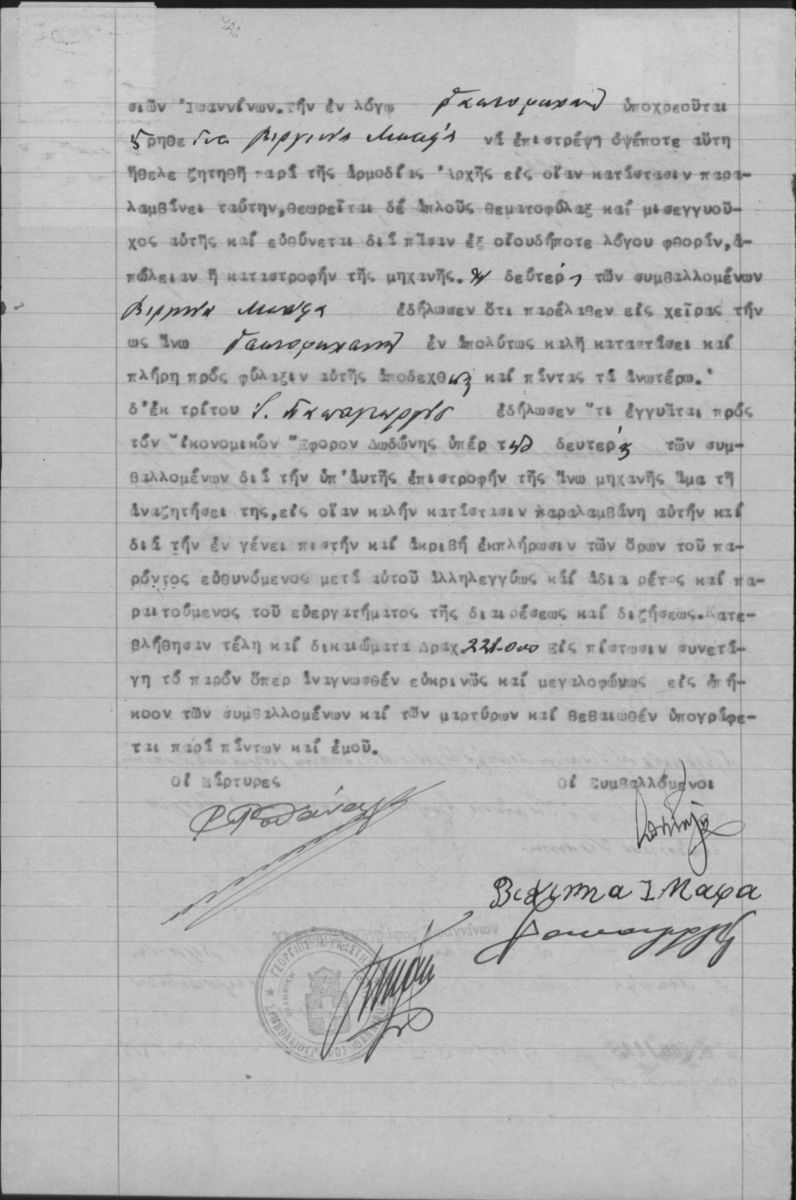 σιῶν Ἰωαννίνων. Τήν ἐν λόγῳ ὑποχρεοῦται
ρηθεῖσα Βιργινία Μπαφα νά ἐπιστρέψῃ ὁψέποτε αὕτη
ἤθελε ζητηθῆ παρά τῆς ἁρμοδίας Ἀρχῆς εἰς οἵαν κατάστασιν παρα-
λαμβάνει ταύτην, θεωρεῖται δέ ἁπλοῦς θεματοφύλαξ καί μεσεγγυοῦ-
χος αὐτῆς καί εὐθύνεται διά πᾶσαν ἐξ οἱουδήποτε λόγου φθοράν, ἀ-
πώλειαν ἤ καταστροφήν τῆς μηχανῆς. Ἡ δευτέρα τῶν συμβαλλομένων
Βιργινία Μπαφα ἐδήλωσεν ὅτι παρέλαβεν εἰς χεῖρας τήν
ὡς ἄνω ἐν ἀπολύτως καλῆ καταστάσει καί
πλήρη πρός φύλαξιν αὐτῆς ἀποδεχθ καί πάντας τά ἀνωτέρω. Ὁ
δ' ἐκ τρίτου Παπαγεωργίου ἐδήλωσεν ὅτι ἐγγυᾶται πρός
τόν Οἰκονομικόν Ἔφορον Δωδώνης ὑπέρ τῆς δευτέρας τῶν συμ-
βαλλομένων διά τήν ὑπ' αὐτῆς ἐπιστροφήν τῆς ἄνω μηχανῆς ἅμα τῆ
ἀναζητήσει της, εἰς οἵαν καλήν κατάστασιν παραλαμβάνη αὐτήν καί
διά τήν ἐν γένει πιστήν καί ἀκριβῆ ἐκπλήρωσιν τῶν ὅρων τοῦ πα-
ρόντος εὐθυνόμενος μετά αὐτοῦ ἀλληλεγγύως καί ἀδιαιρέτως καί πα-
ραιτούμενος τοῦ εὐεργατήματος τῆς διαιρέσεως καί διζήσεως. Κατε-
βλήθησαν τέλη καί δικαιώματα Δραχ. 221.000 Εἰς πίστωσιν συνετά-
γη τό παρόν ὅπερ ἀναγνωσθέν εὐκρινῶς καί μεγαλοφώνως εἰς ἐπή-
κοον τῶν συμβαλλομένων καί τῶν μαρτύρων καί βεβαιωθέν ὑπογράφε-
ται παρά πάντων καί ἐμοῦ.
Οἱ Μάρτυρες Οἱ Συμβαλλόμενοι
Βιργινηα Ι Μαφα